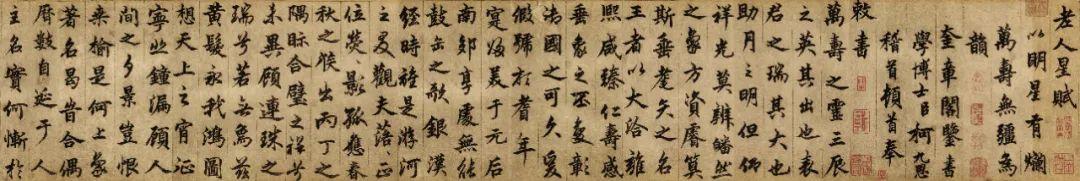 老人星賦
以明星有爛
萬壽無疆為
韻
奎章閣鑒書
學博士臣柯九思
稽首頓首奉
敕書
萬壽之靈三辰
之英其出也表
君之瑞其大也
助月之明但仰
祥光莫辨皤然
之象方資睿算
斯垂耄矣之名
王者以大洽雍
熙威臻仁壽感
垂象之丕變
法國之可久爰
假號於耆年
寔媲美于元后
南郊享處無能
鼓缶之歌銀漢
經時雖是游河
之叟觀夫落正
位熒熒影孤應春
秋之候出丙丁之
隅眎合璧之祥兮
未異顧連珠之
瑞兮若無為茲
黃髮永我鴻圖
想天上之宵征
寧悲鐘漏顧人
間之夕景豈恨
桑榆是何上象
著名曷皆合偶
曆數自延于人
主名實何慚於